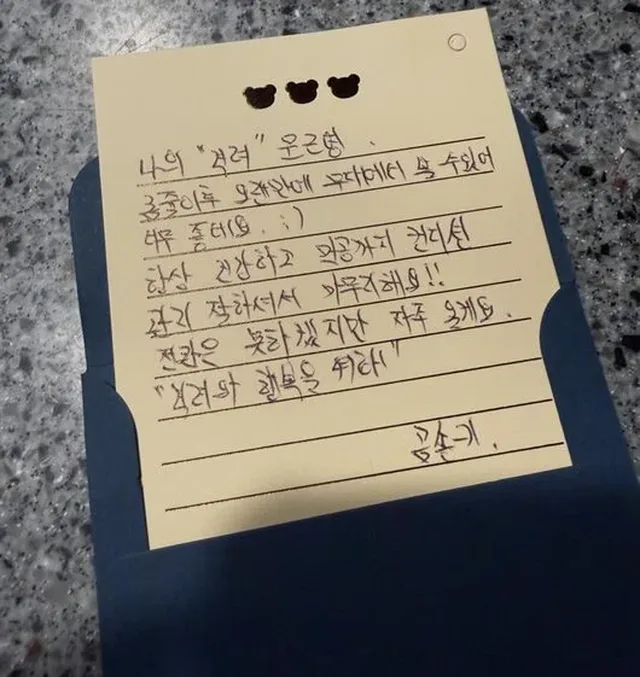 나의 "격려" 운근형.
곰줄이후 오랜만에 무대에서 볼 수있어
너무 좋네요. :)
항상 건강하고 막공까지 컨디션
관리 잘하셔서 마무리해요!!
전관은 못하겠지만 자주 올게요.
"격려와 행복을 위하!"
곰손기.